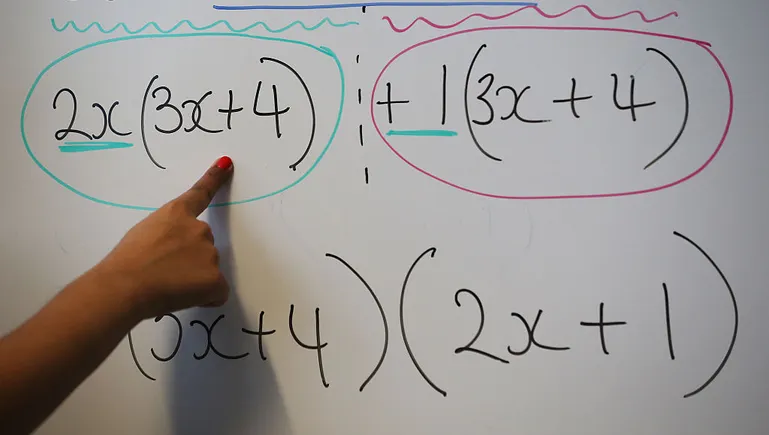 2x(3x+4) + 1(3x+4)
(3x+4)(2x+1)